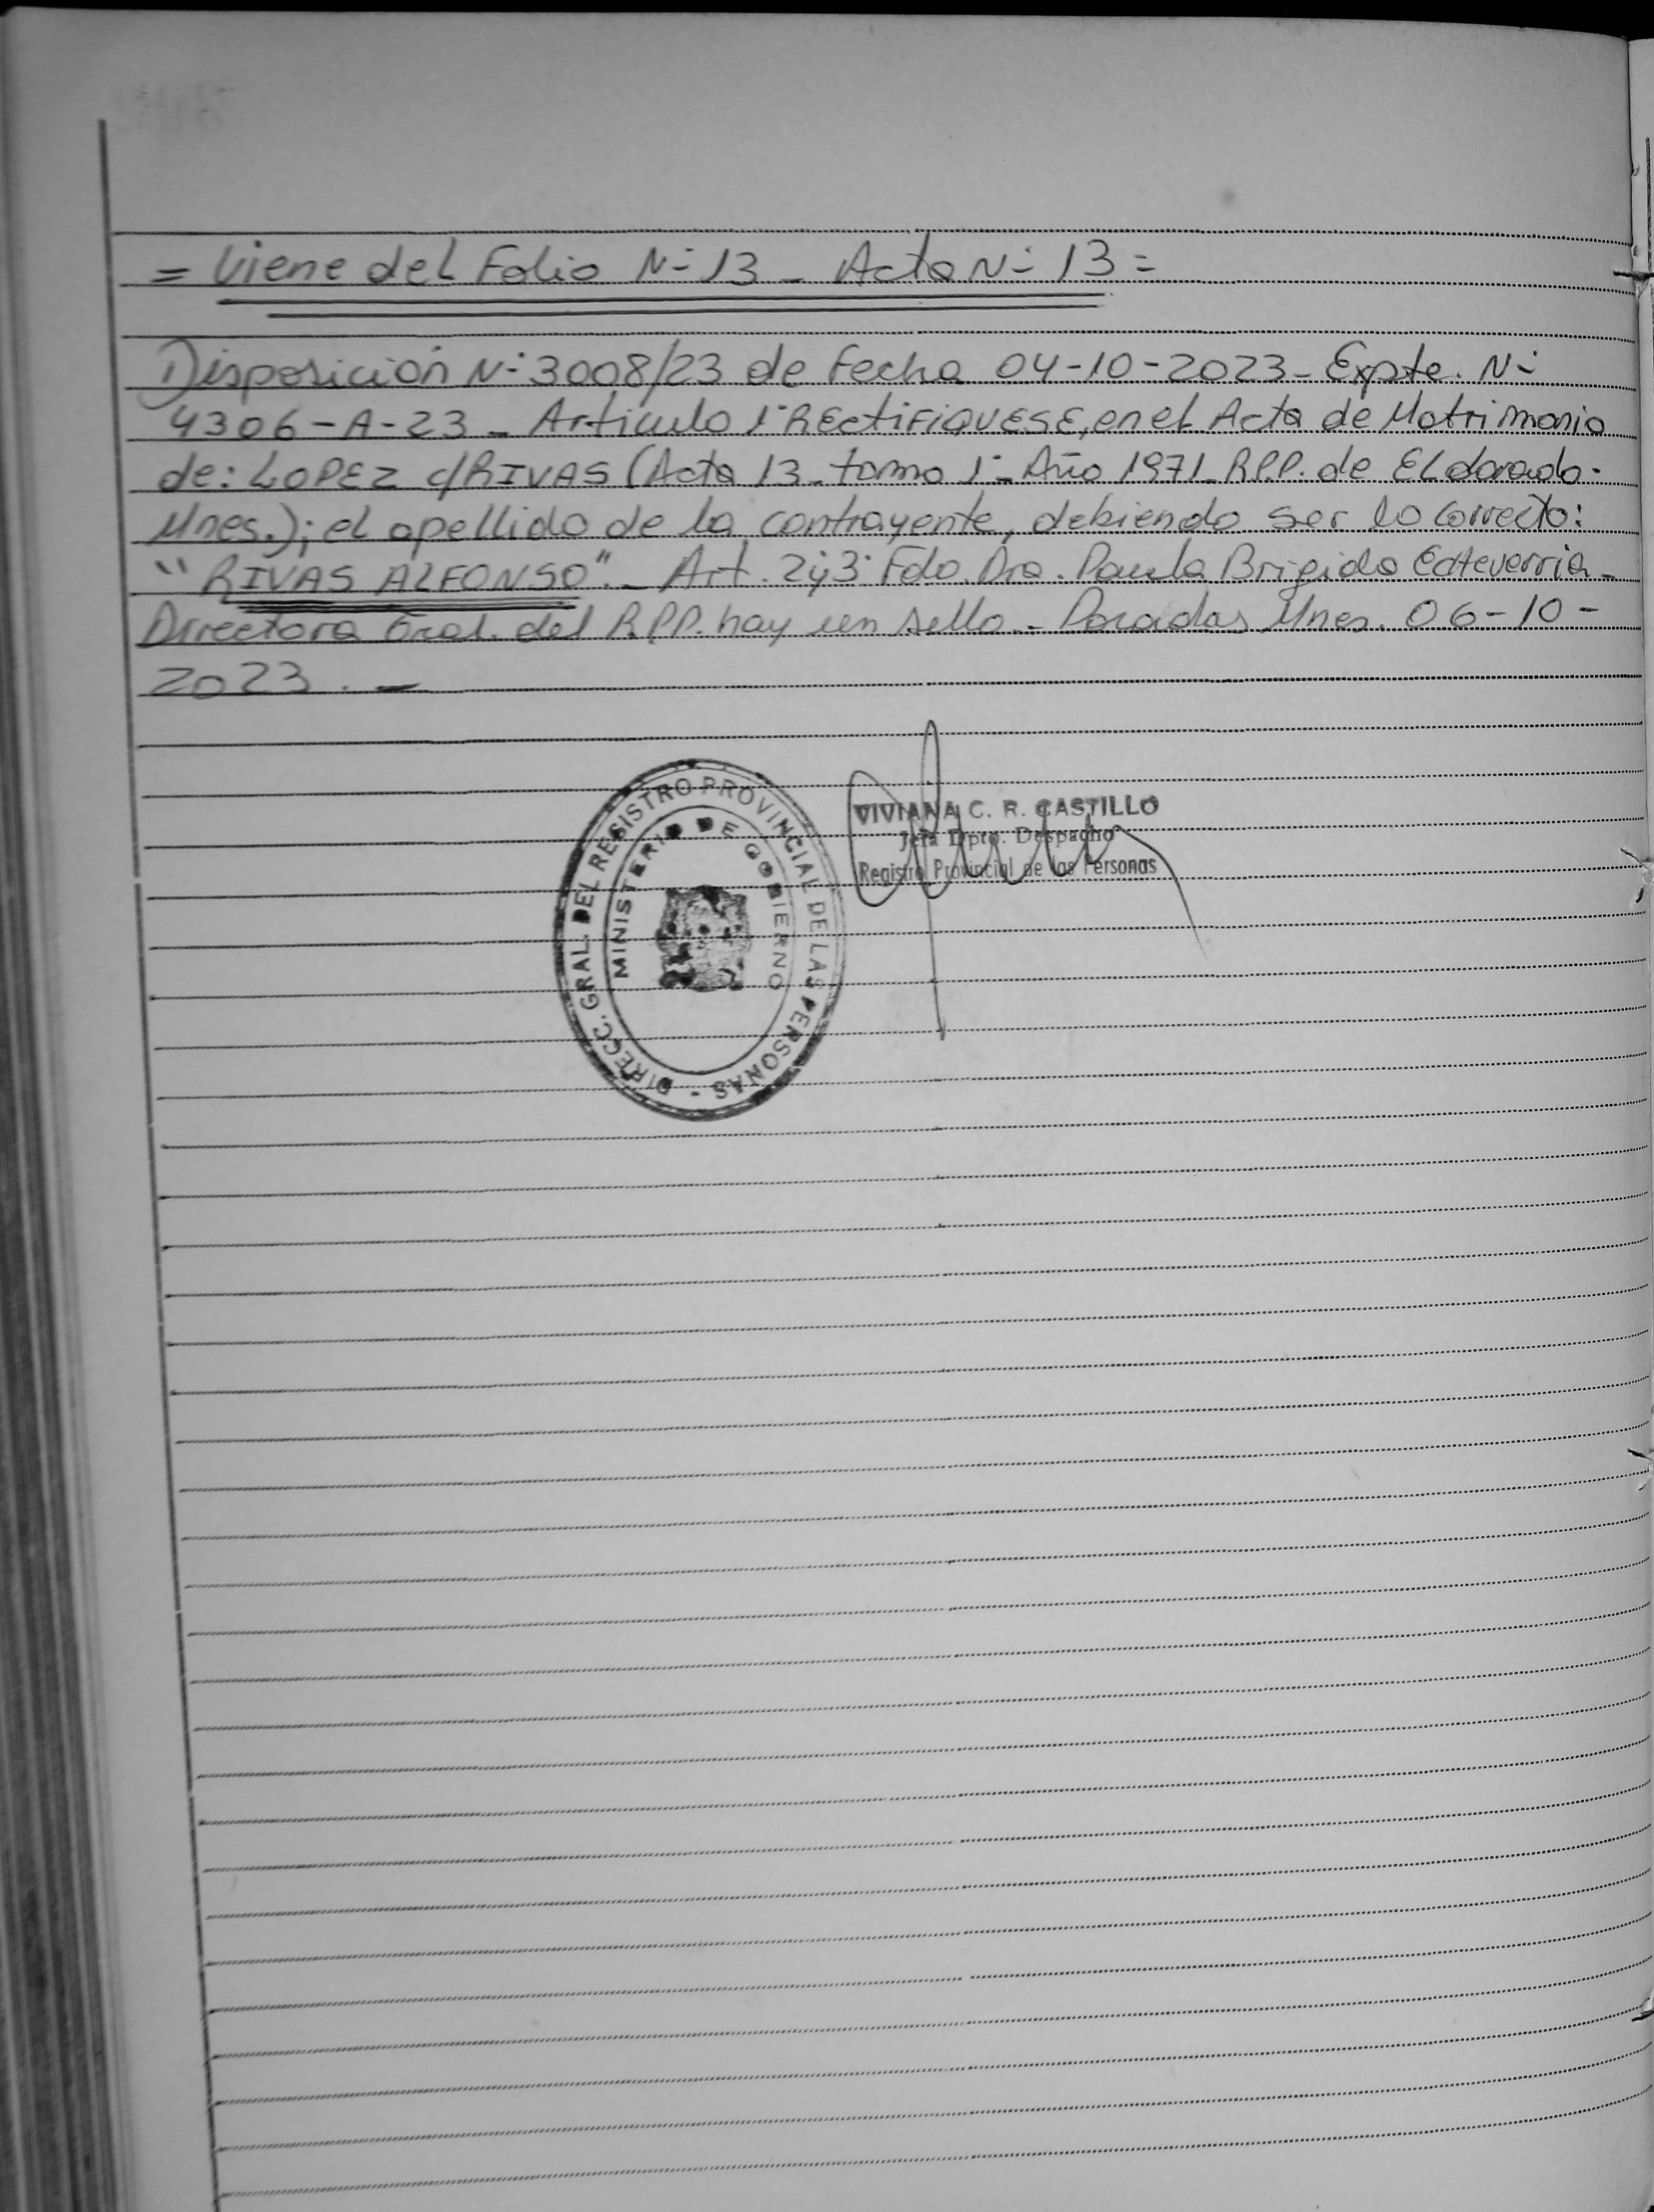 = Viene del Folio N- 13 - Acta N- 13 =
Disposición N- 3008/23 de Fecha 04-10-2023 - Expte. N-
4306-A-23 - Articulo 1° RECTIFIQUESE, en el Acta de Matrimonio
de: LOPEZ c/RIVAS (Acta 13 - tomo 1° - Año 1971 - R.P.P. de Eldorado -
Mnes.); el apellido de la contrayente, debiendo ser lo correcto:
"RIVAS ALFONSO". - Art. 2y3° Fdo. Dra. Paula Brigida Echeverria -
Directora Gral. del R.P.P. hay un sello. - Posadas Mnes. 06-10-
2023. -
DIRECC. GRAL. DEL REGISTRO PROVINCIAL DE LAS PERSONAS -
MINISTERIO DE GOBIERNO
VIVIANA C. R. CASTILLO
Jefa Dpto. Despacho
Registro Provincial de las Personas